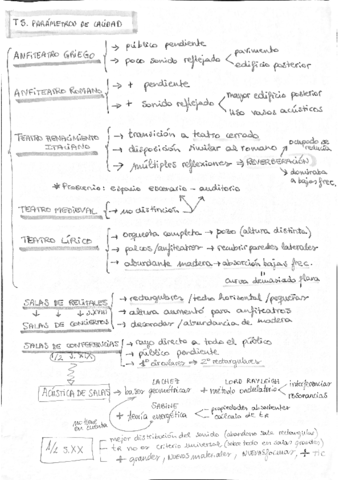 T5. PARÁMETROS DE CALIDAD
ANFITEATRO GRIEGO → público pendiente
→ poco sonido reflejado < pavimento
edificio posterior
ANFITEATRO ROMANO → + pendiente
→ + sonido reflejado < mayor edificio posterior
uso vasos acústicos
TEATRO RENACIMIENTO ITALIANO → transición a teatro cerrado
→ disposición similar al romano
→ múltiples reflexiones → REVERBERACIÓN
dominaba a bajas frec.
* Proscenio: espacio escenario - auditorio
TEATRO MEDIEVAL → no distinción
TEATRO LÍRICO → orquesta completa → pozo (altura distinta)
→ palcos/anfiteatros → recubrir paredes laterales
→ abundante madera → absorción bajas frec.
curva demasiado plana
SALAS DE RECITALES → rectangulares / techo horizontal / pequeñas
↓ ↓ ↓ S.XVIII → altura aumentó para anfiteatros
SALAS DE CONCIERTOS → decorados / abundancia de madera
SALAS DE CONFERENCIAS → rayo directo a todo el público
1/2 S.XIX → público pendiente
→ 1º circulares → 2º rectangulares
ACÚSTICA DE SALAS → bases geométricas + método ondulatorio < interferencias
LORD RAYLEIGH
resonancias
SABINE
+ teoría energética < propiedades absorbentes
cálculo de tR
no tiene en cuenta
1/2 S.XX → mejor distribución del sonido (abandono sala rectangular)
tR no es criterio universal
+ grandes, nuevos materiales, nuevas formas, + TIC